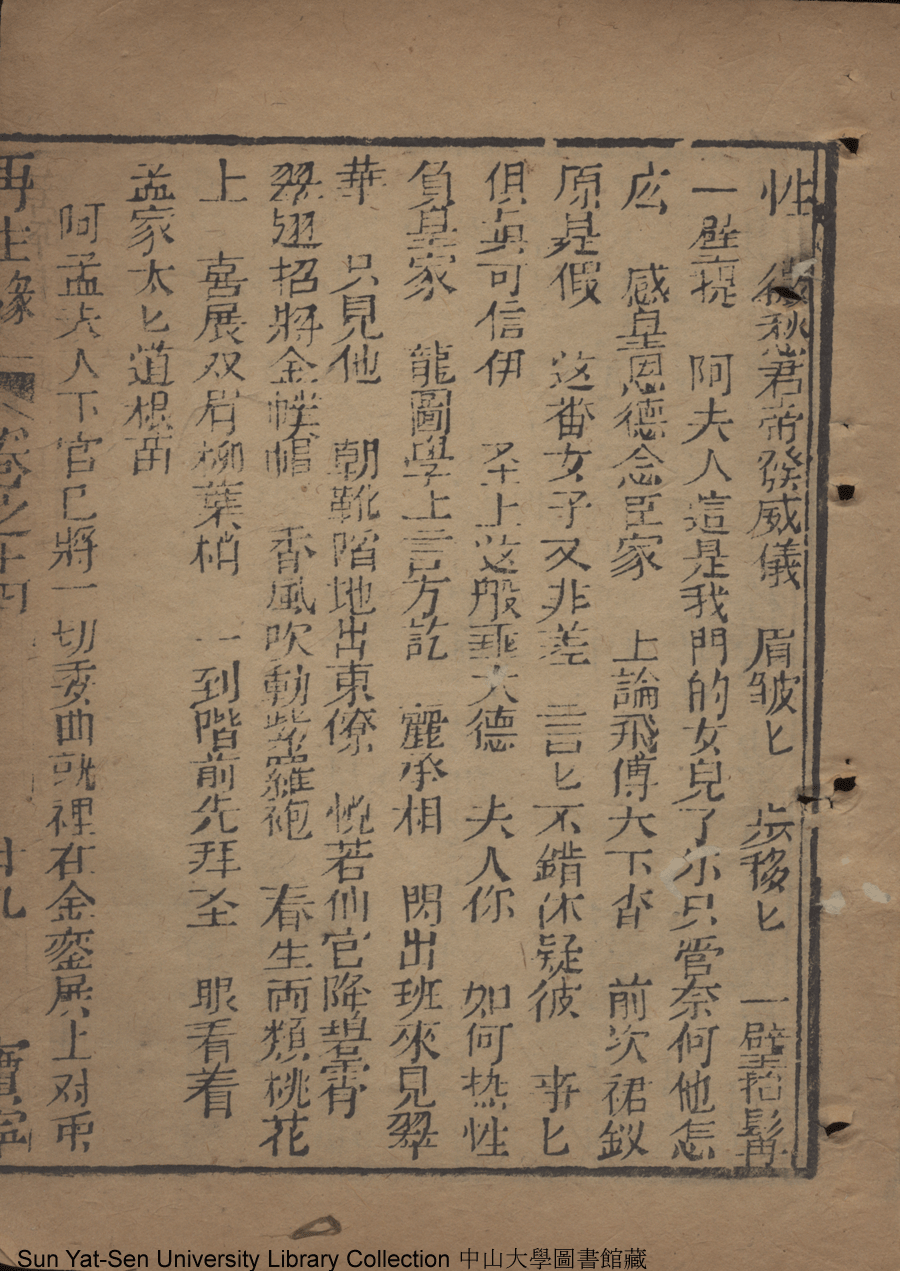 性　微愁君帝發威儀　眉皱匕　步移匕　一壁招髪再
一壁提　阿夫人這是我門的女兒了尔只管奈何他怎
庅　感皇恩德念臣家　上論飛傳天下杳　前次裙釵
原是假　这番女子又非差　言匕不錯休疑彼　事匕
俱真可信伊　圣上这般垂大德　夫人你　如何热性
負皇家　龍圖學上言方訖　酈承相　閃出班來見翠
華　只見他　朝靴踏地出東僚　恍若仙官降碧霄
翠翅招將金幞帽　香風吹動紫羅袍　春生両頰桃花
上　喜展双眉柳葉梢　一到階前先拜圣　眼看着
孟家太匕道根苗
阿孟夫人下官已將一切委曲就裡在金銮展上对両
再生緣　卷之十四　廿九　寳寧
Sun Yat-Sen University Library Collection 中山大學圖書館藏